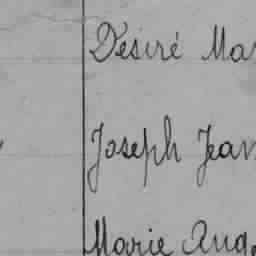 Désiré Mar
Joseph Jean
Marie Aug